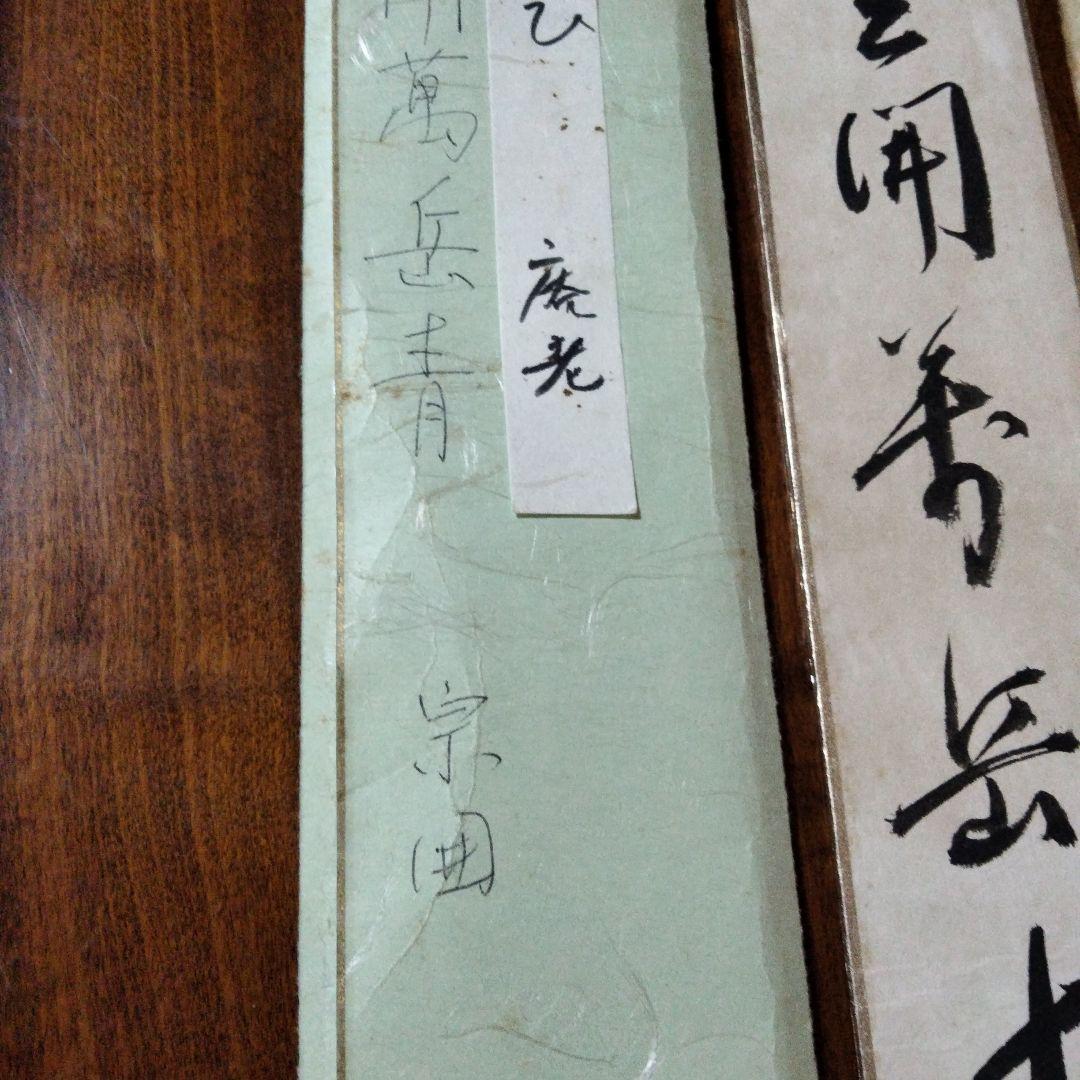 雲開萬岳
ひ 庵老
開萬岳青 宗